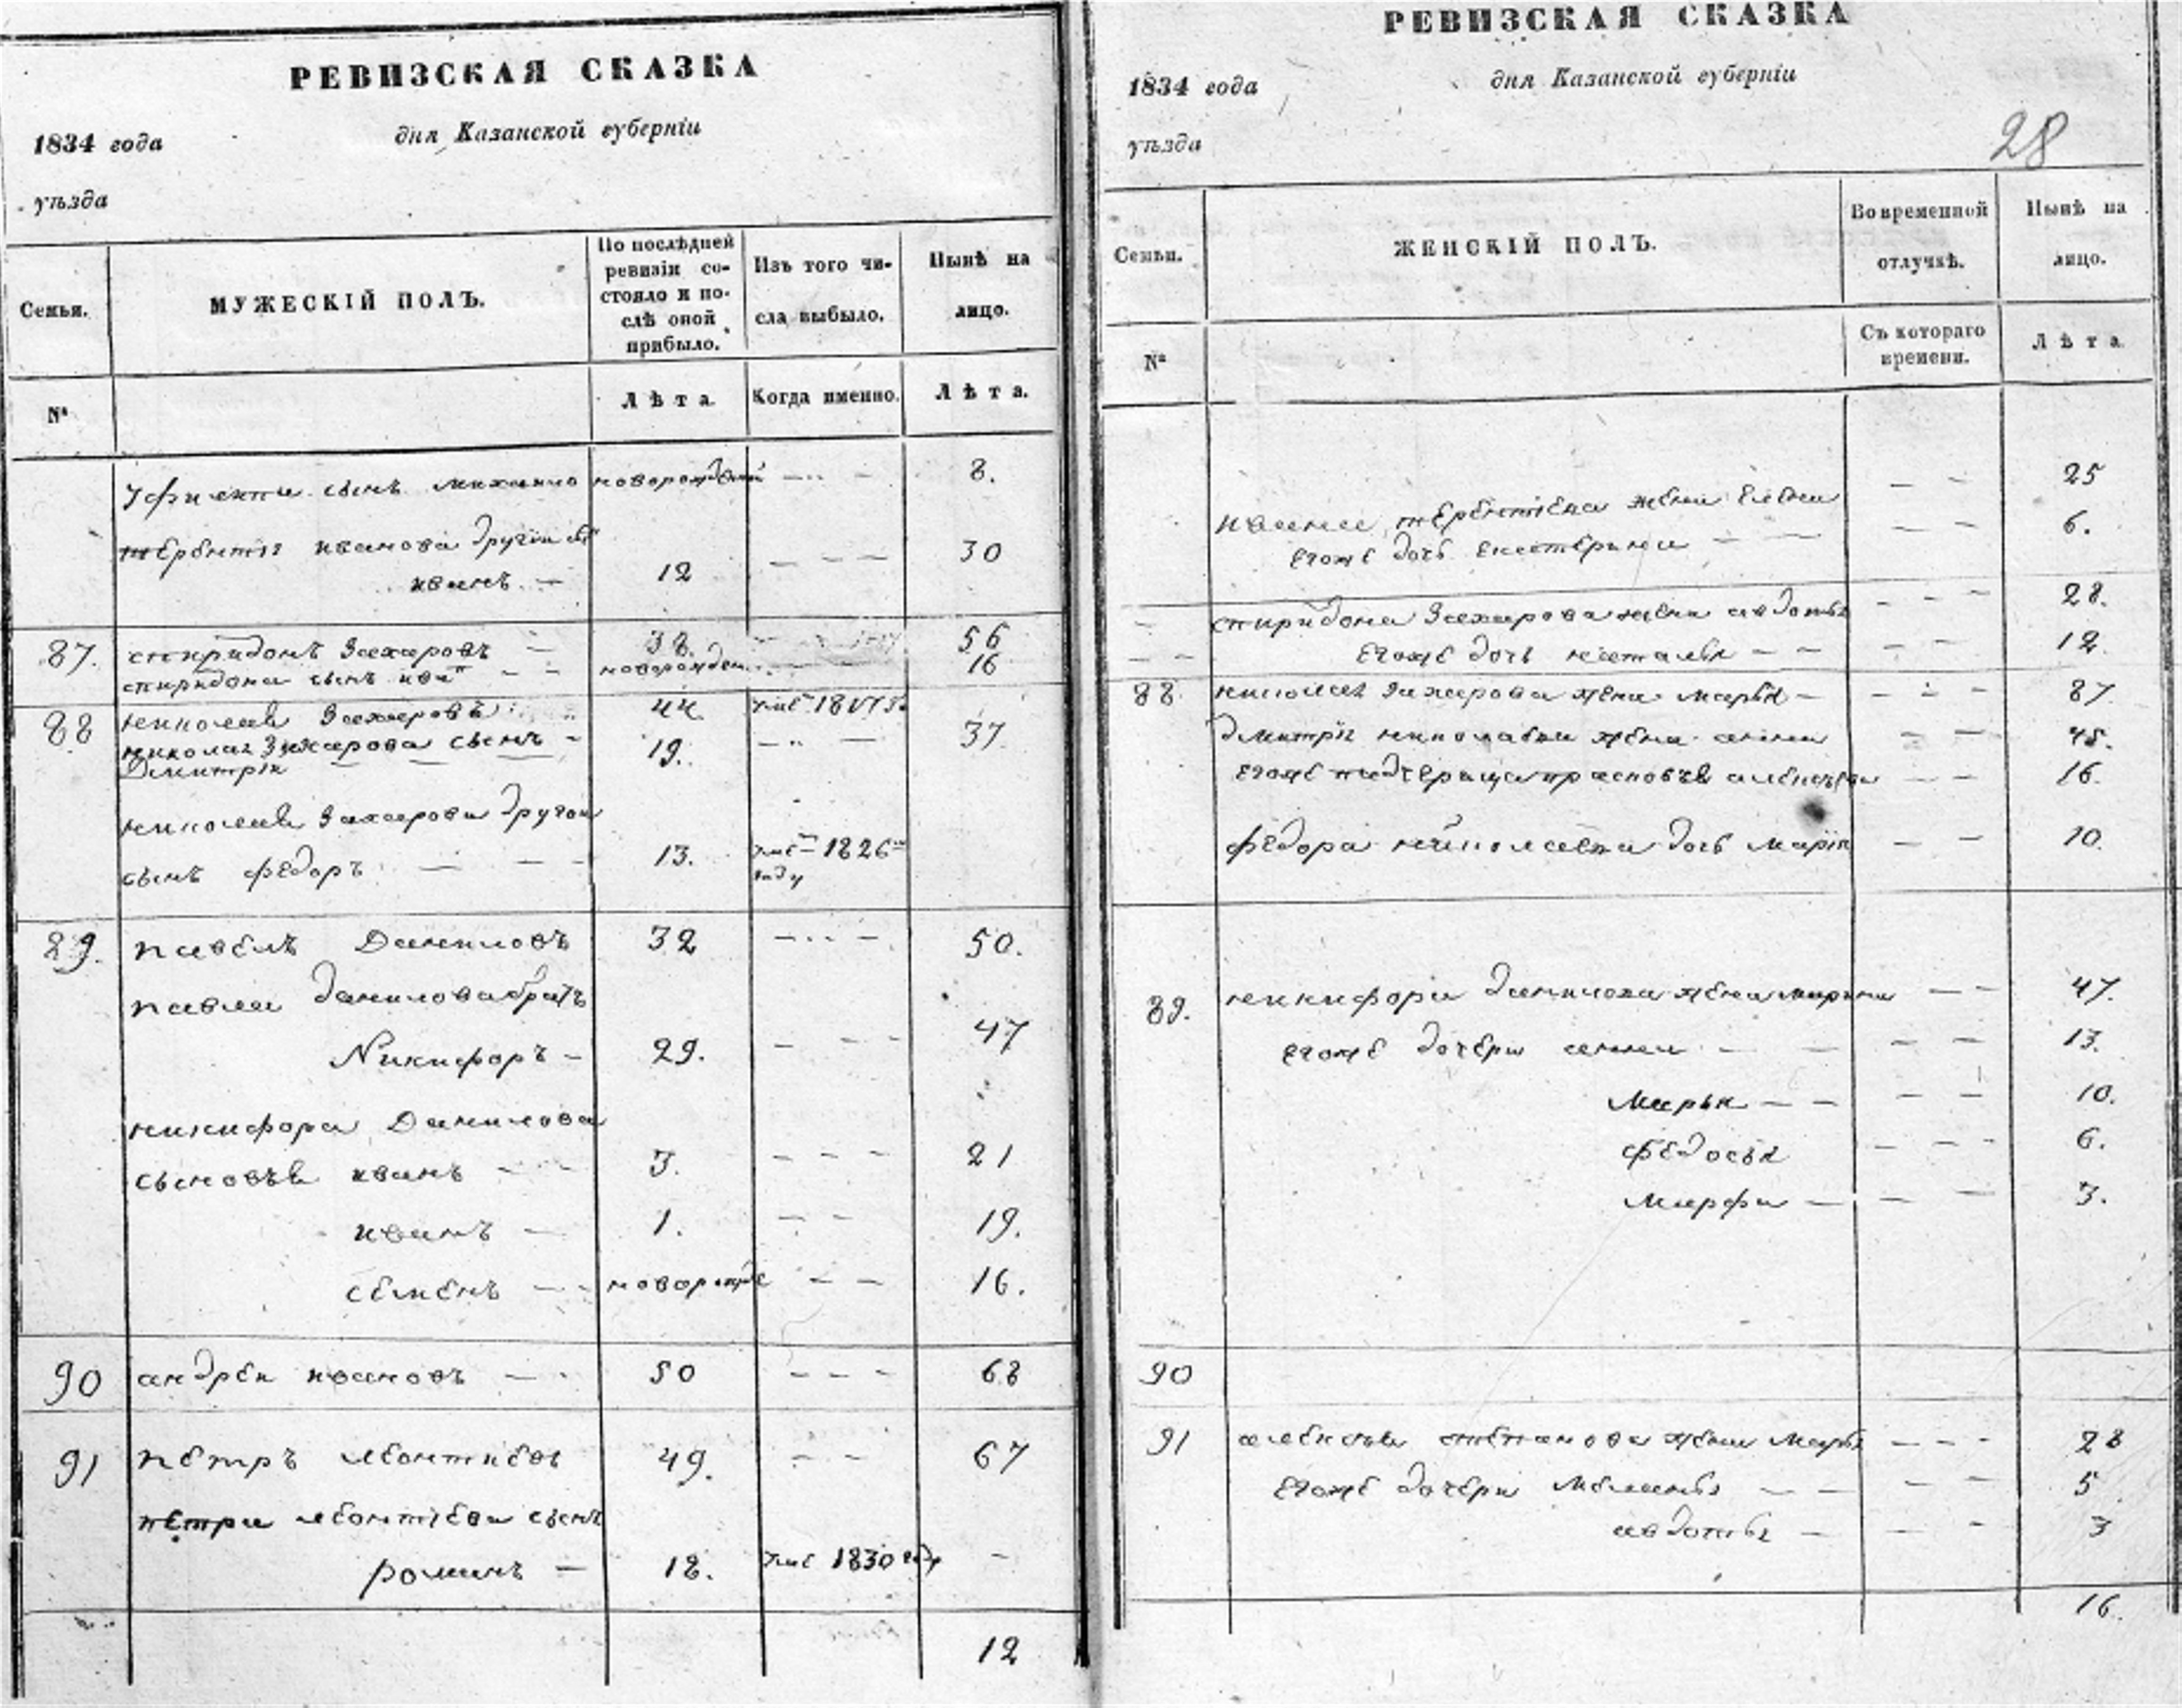 РЕВИЗСКАЯ СКАЗКА
1834 года дня Казанской губерніи
уѣзда
Семьи.
МУЖЕСКІЙ ПОЛЪ.
По послѣдней ревизіи состояло и послѣ оной прибыло.
Изъ того числа выбыло.
Нынѣ на лицо.
№
Лѣта.
Когда именно.
Лѣта.
сынъ михаило 8.
терентія иванова другіи
иванъ 12 30
87. спиридонъ Захаровъ 38. 56
спиридона сынъ 16
88 николаи Захаровъ 44
николая Захарова сынъ 19. 37
Дмитріи
николая Захарова другои
сынъ федоръ 13. 1826
году
89. павелъ Даниловъ 32 50.
павла данилова братъ
Никифоръ 29. 47
никифора Данилова
сыновья иванъ 3. 21
иванъ 1. 19.
семенъ 16.
90 андреи ивановъ 50 68
91 петръ леонтиевъ 49. 67
петра леонтіева сынъ
романъ 12. 1830
12
РЕВИЗСКАЯ СКАЗКА
1834 года дня Казанской губерніи
уѣзда
28
Семьи.
ЖЕНСКІЙ ПОЛЪ.
Во временной отлучкѣ.
Нынѣ на лицо.
№
Съ котораго времени.
Лѣта.
ивана терентіева жена елена 25
егоже дочь екатерина 6.
спиридона Захарова жена авдотья 28.
егоже дочь наталья 12.
88 николая Захарова жена марья 87.
дмитрія николаева жена анна 45.
егоже падчерица 16.
федора николаева дочь марія 10.
89. никифора данилова жена марина 47.
егоже дочери анна 13.
марья 10.
федосья 6.
марфа 3.
90
91 алексея степанова жена марья 28
егоже дочери меланья 5
авдотья 3
16.